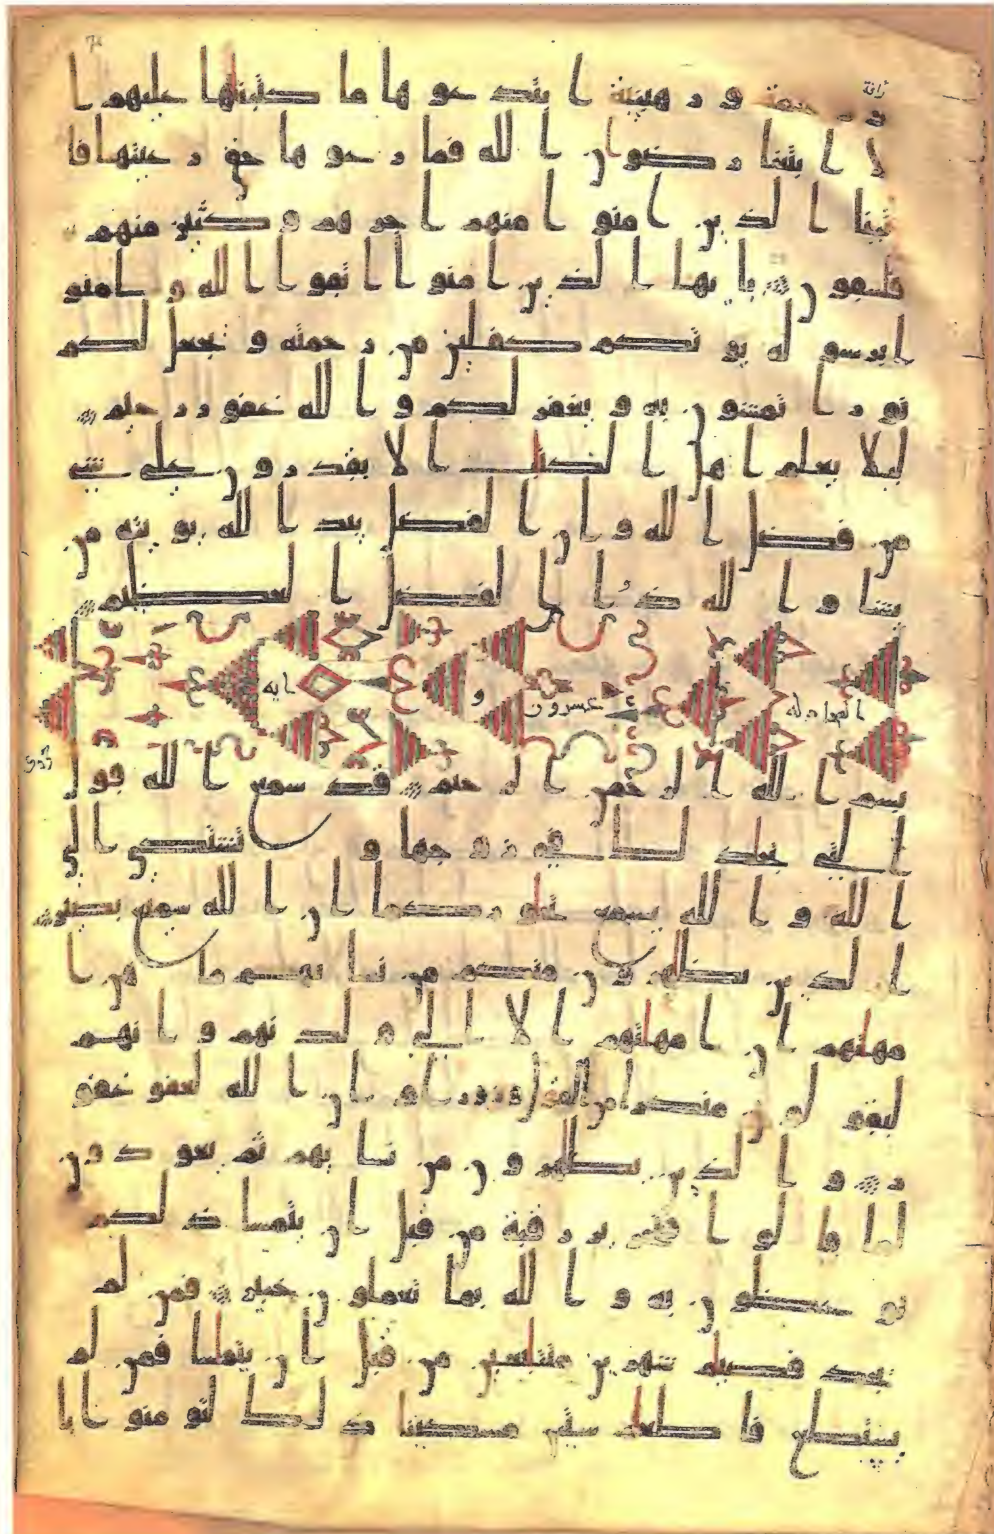 رافة
و رحمة و رهبنية ابتدعوها ما كتبنها عليهم ا
لا ابتغا رضون الله فما رعوها حق رعيتها فا
تينا الذين امنوا منهم اجرهم و كثير منهم
فسقون يايها الذين امنوا اتقوا الله و امنو
ا برسوله يوتكم كفلين من رحمته و يجعل لكم
نورا تمشون به و يغفر لكم و الله غفور رحيم
ليلا يعلم اهل الكتب الا يقدرون على شى
من فضل الله و ان الفضل بيد الله يوتيه من
يشا و الله ذو الفضل العظيم
المجادله عشرون و ايه
بسم الله الرحمن الرحيم قد سمع الله قول
التى تجدلك فى زوجها و تشتكى الى
الله و الله يسمع تحاوركما ان الله سميع بصير
الذين يظهرون منكم من نسايهم ما هن ا
مهتهم ان امهتهم الا الى ولدنهم و انهم
ليقولون منكرا من القول وزورا و ان الله لعفو غفو
ر و الذين يظهرون من نسايهم ثم يعودون
لما قالوا فتحرير رقبة من قبل ان يتماسا ذلكم
توعظون به و الله بما تعملون خبير فمن لم
يجد فصيام شهرين متتابعين من قبل ان يتماسا فمن لم
يستطع فاطعام ستين مسكينا ذلك لتومنوا با